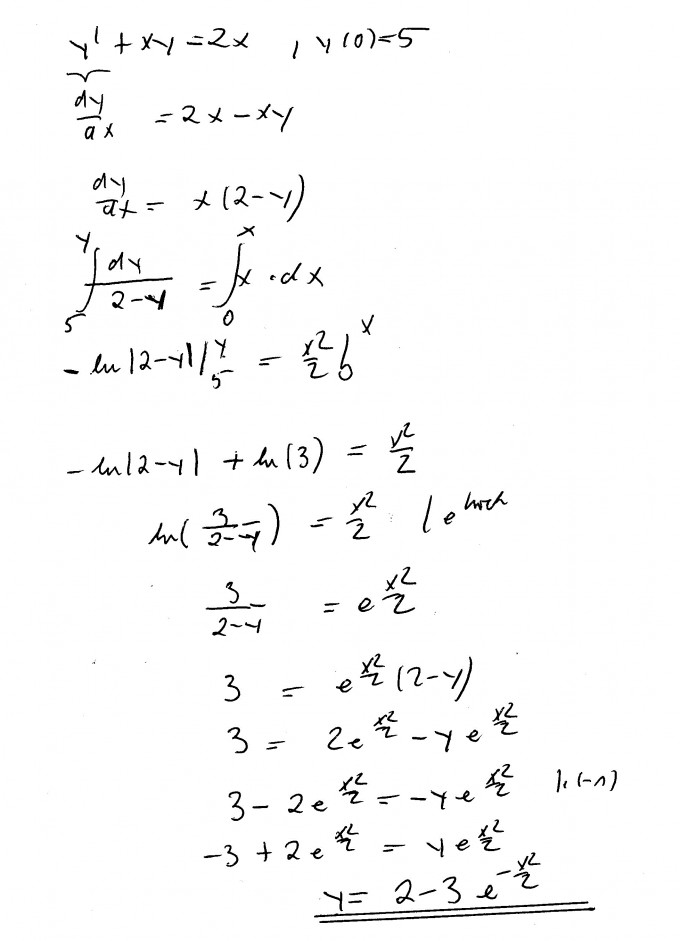 y' + xy = 2x , y(0)=5
dy/dx = 2x - xy
dy/dx = x(2-y)
∫_5^y dy/(2-y) = ∫_0^x x · dx
- ln|2-y| |_5^y = x²/2 |_0^x
- ln|2-y| + ln(3) = x²/2
ln(3/(2-y)) = x²/2 | e^hoch
3/(2-y) = e^(x²/2)
3 = e^(x²/2) (2-y)
3 = 2e^(x²/2) - y e^(x²/2)
3 - 2e^(x²/2) = -y e^(x²/2) |·(-1)
-3 + 2e^(x²/2) = y e^(x²/2)
y = 2 - 3 e^(-x²/2)